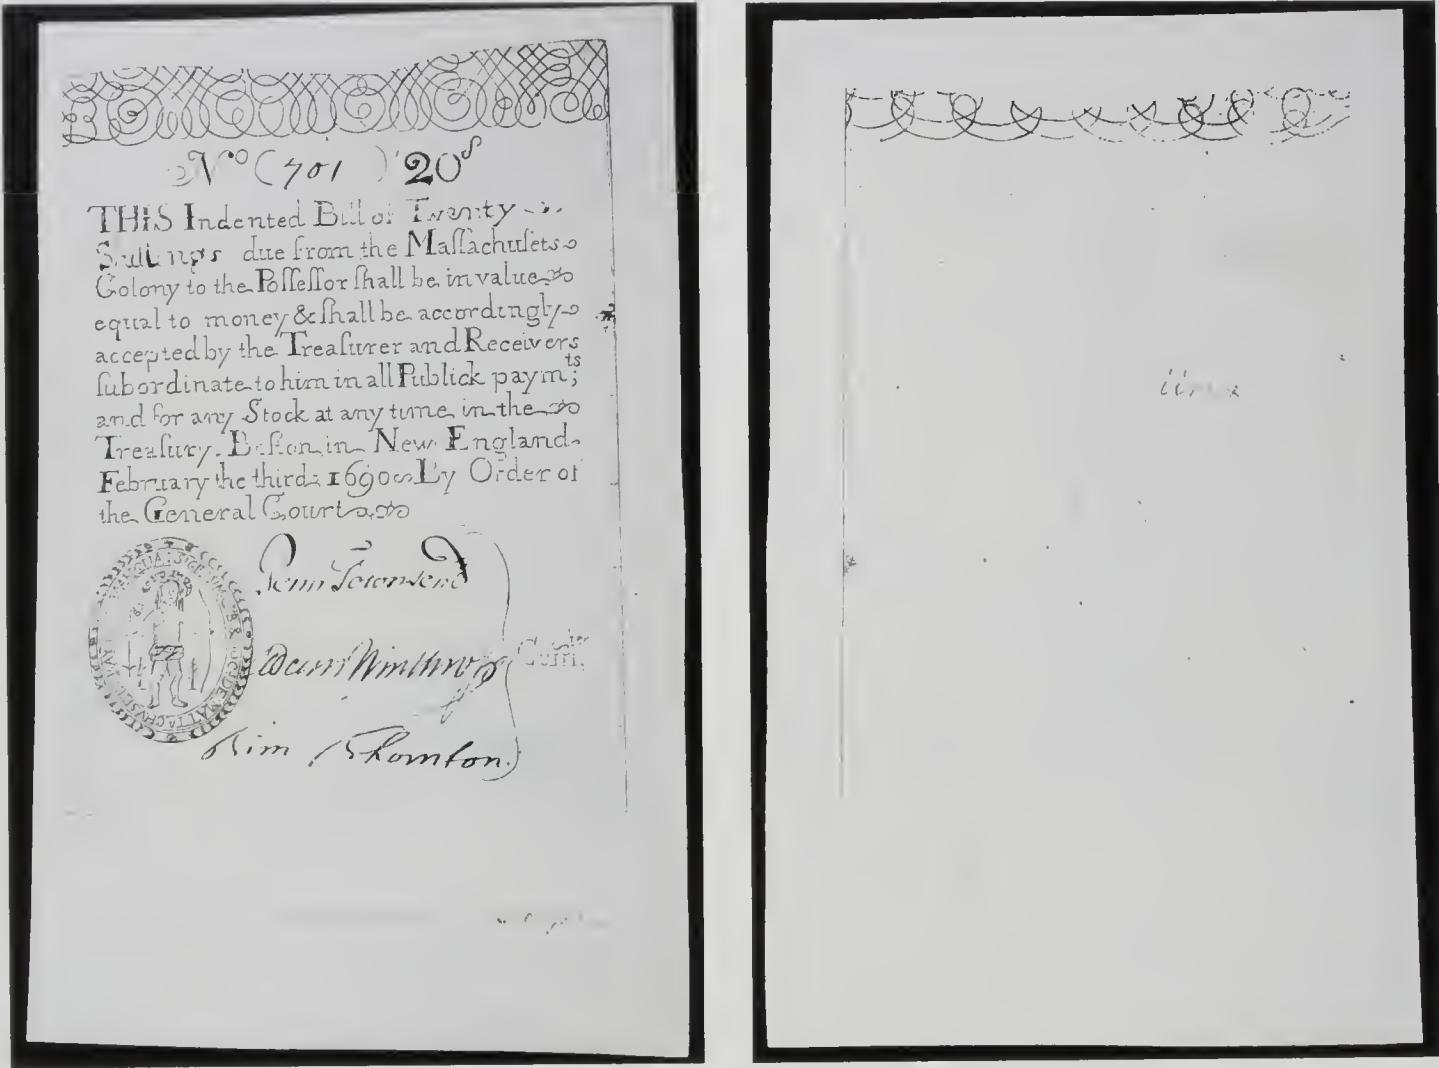 No (701) 20s
THIS Indented Bill of Twenty
Shillings due from the Maſſachuſets
Colony to the Poſſeſſor ſhall be in value
equal to money & ſhall be accordingly
accepted by the Treaſurer and Receivers
ſubordinate to him in all Publick paymts;
and for any Stock at any time in the
Treaſury. Boſton in New England
February the third 1690 By Order of
the General Court
Penn Townsend
Adam Winthrop Comtee
Tim Thornton